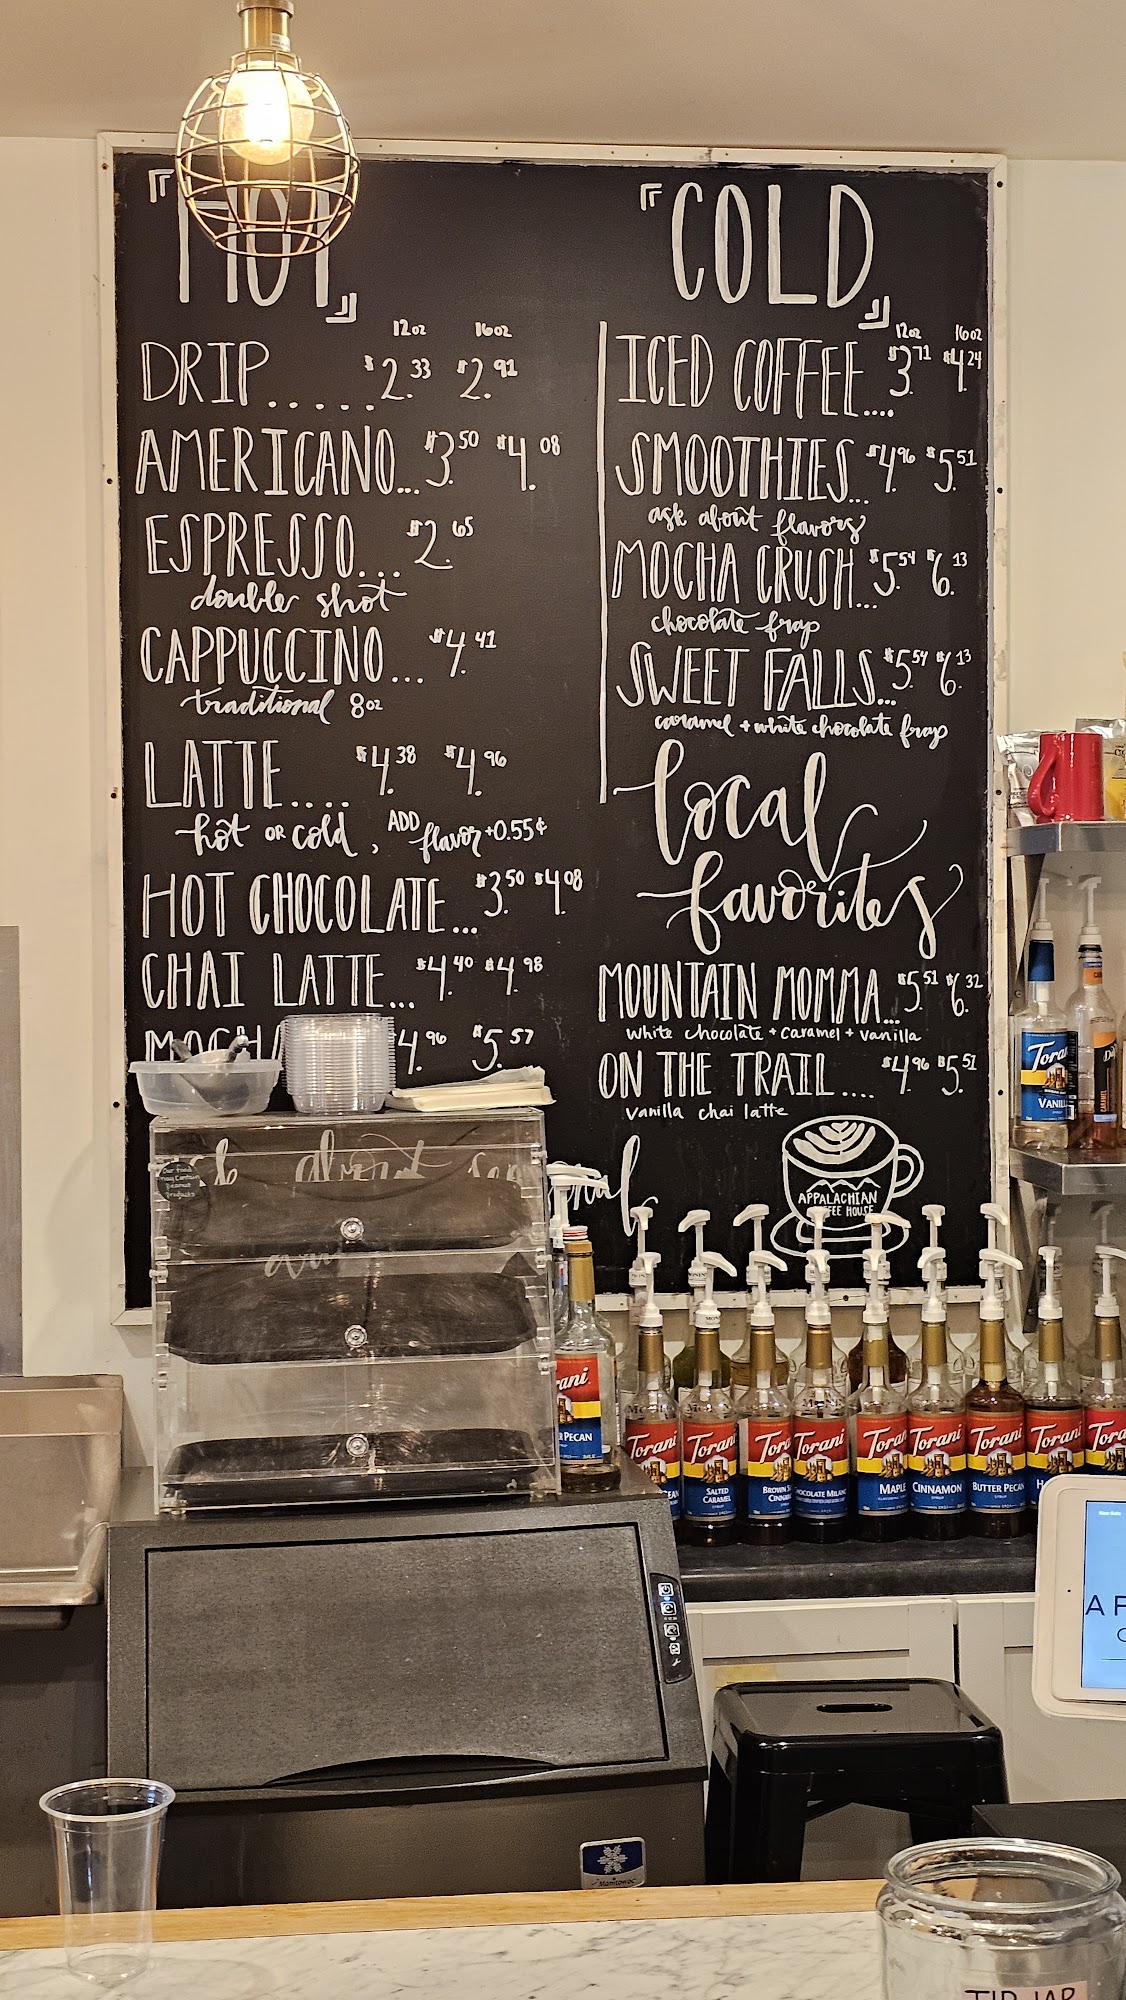 HOT
12oz 16oz
DRIP..... $2.33 $2.91
AMERICANO... $3.50 $4.08
ESPRESSO... $2.65
double shot
CAPPUCCINO... $4.41
traditional 8oz
LATTE.... $4.38 $4.96
hot OR cold, ADD flavor +0.55¢
HOT CHOCOLATE... $3.50 $4.08
CHAI LATTE... $4.40 $4.98
MOCHA 4.96 $5.57
about seasonal
COLD
12oz 16oz
ICED COFFEE.... $3.71 $4.24
SMOOTHIES... $4.96 $5.51
ask about flavors
MOCHA CRUSH... $5.54 $6.13
chocolate frap
SWEET FALLS... $5.54 $6.13
caramel + white chocolate frap
local
favorites
MOUNTAIN MOMMA... $5.51 $6.32
white chocolate + caramel + vanilla
ON THE TRAIL.... $4.96 $5.51
vanilla chai latte
APPALACHIAN
COFFEE HOUSE
Our food
may contain
peanut
products
Torani
VANILLA
CARAMEL
Torani
BUTTER PECAN
Torani
Torani
SALTED
CARAMEL
Torani
BROWN SUGAR
CINNAMON
Torani
CHOCOLATE MILANO
Torani
MAPLE
Torani
CINNAMON
Torani
BUTTER PECAN
Torani
Torani
Manitowoc
TIP JAR